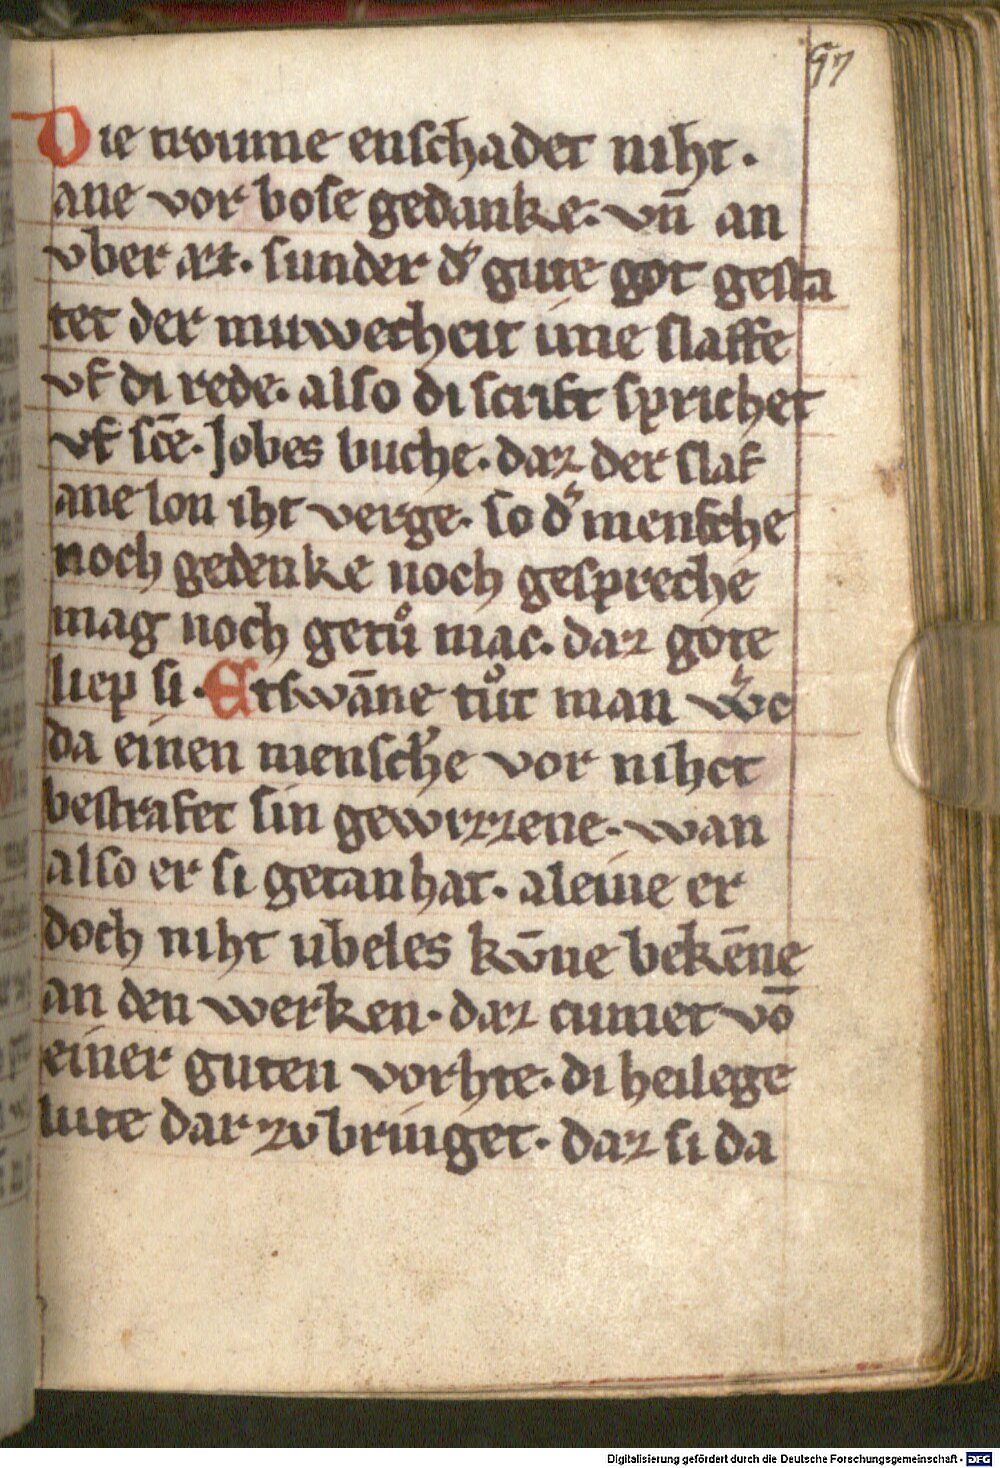 97
Die troume enschadet niht.
ane vor bose gedanke. vn̄ an
vber azt. sunder dˀ gute got gesta
tet der mutwecheit ime slaffe
vf di rede. also di scrift sprichet
vf sc̄e. Jobes buche. daz der slaf
ane lon iht verge. so dˀ mensche
noch gedenke noch gespreche
mag noch getuͦ mac. daz gote
liep si. Etswāne tuͦt man
da einen mensche vor nihet
bestrafet sin gewizzene. wan
also er si getan hat. aleine er
doch niht ubeles kvͤne bekēne
an den werken. daz cumet vō
einer guten vorhte. di heilege
lute dar zv bringet. daz si da
Digitalisierung gefördert durch die Deutsche Forschungsgemeinschaft - DFG